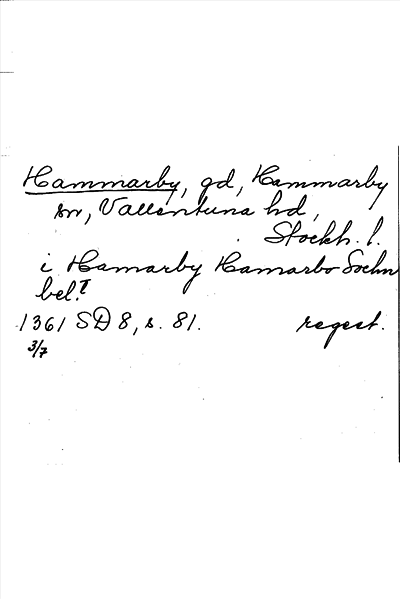 Hammarby, gd, Hammarby
sn, Vallentuna hd,
Stockh. l.
i Hamarby Hamarbo Sochn
bel.
1361 SD 8, s. 81. regest.
3/7